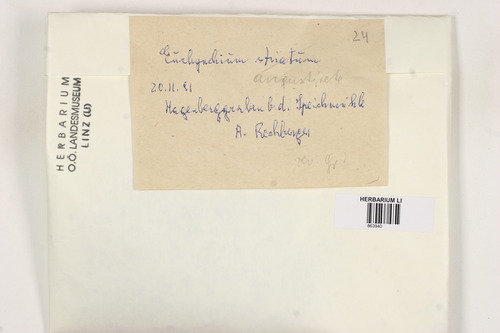 24
Eurhynchium striatum
20.11.81
Hagenberggraben b. d. Speichmühle
A. Rechberger
rev.
HERBARIUM
O.Ö. LANDESMUSEUM
LINZ (LI)
HERBARIUM LI
863940